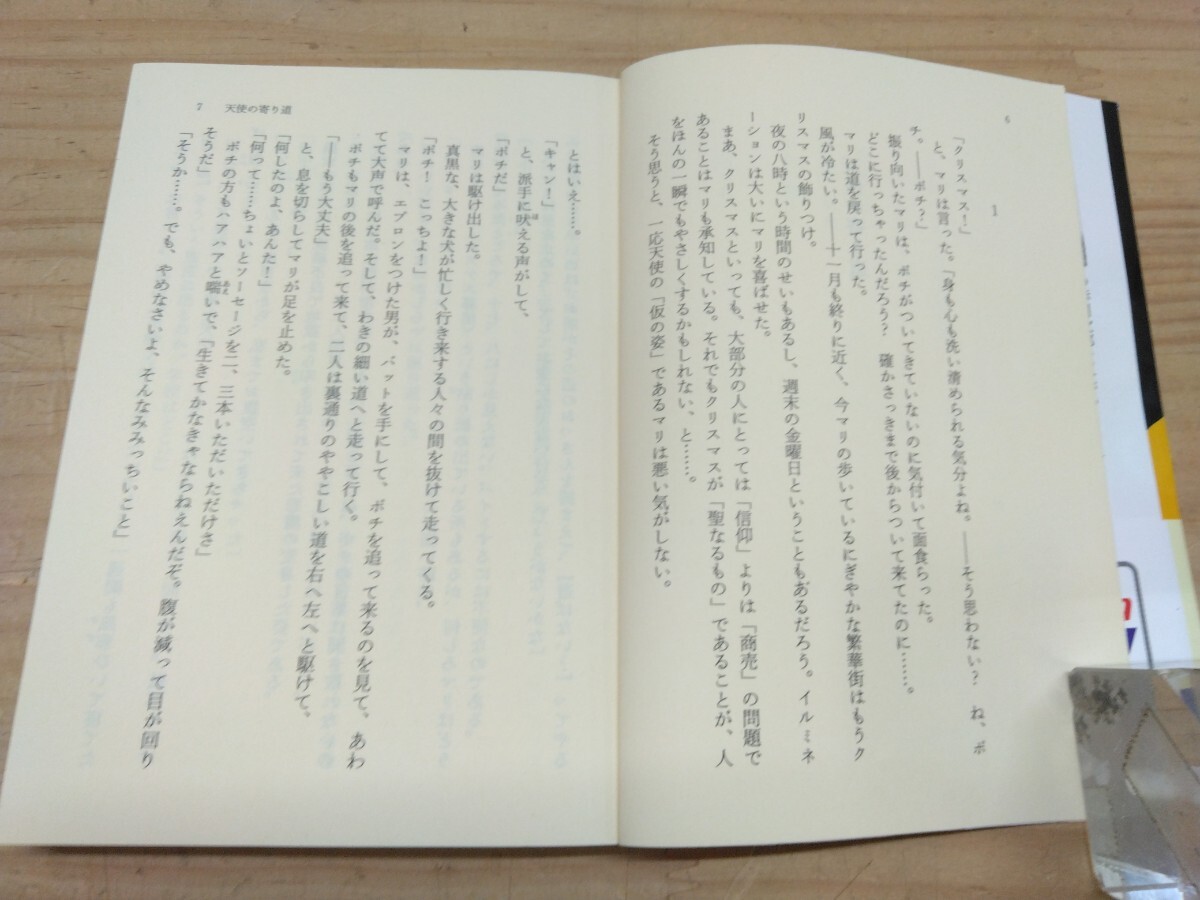 6
1
「クリスマス!」
と、マリは言った。「身も心も洗い清められる気分よね。――そう思わない? ね、ポ
チ。――ポチ?」
振り向いたマリは、ポチがついてきていないのに気付いて面食らった。
どこに行っちゃったんだろう? 確かさっきまで後からついて来てたのに……。
マリは道を戻って行った。
風が冷たい。――十一月も終りに近く、今マリの歩いているにぎやかな繁華街はもうク
リスマスの飾りつけ。
夜の八時という時間のせいもあるし、週末の金曜日ということもあるだろう。イルミネ
ーションは大いにマリを喜ばせた。
まあ、クリスマスといっても、大部分の人にとっては「信仰」よりは「商売」の問題で
あることはマリも承知している。それでもクリスマスが「聖なるもの」であることが、人
をほんの一瞬でもやさしくするかもしれない、と……。
そう思うと、一応天使の「仮の姿」であるマリは悪い気がしない。
7 天使の寄り道
とはいえ……。
「キャン!」
と、派手に吠える声がして、
「ポチだ」
マリは駆け出した。
真黒な、大きな犬が忙しく行き来する人々の間を抜けて走ってくる。
「ポチ! こっちよ!」
マリは、エプロンをつけた男が、バットを手にして、ポチを追って来るのを見て、あわ
てて大声で呼んだ。そして、わきの細い道へと走って行く。
ポチもマリの後を追って来て、二人は裏通りのややこしい道を右へ左へと駆けて、
「――もう大丈夫」
と、息を切らしてマリが足を止めた。
「何したのよ、あんた!」
「何って……ちょいとソーセージを二、三本いただいただけさ」
ポチの方もハアハアと喘いで、「生きてかなきゃならねえんだぞ。腹が減って目が回り
そうだ」
「そうか……。でも、やめなさいよ、そんなみみっちいこと」